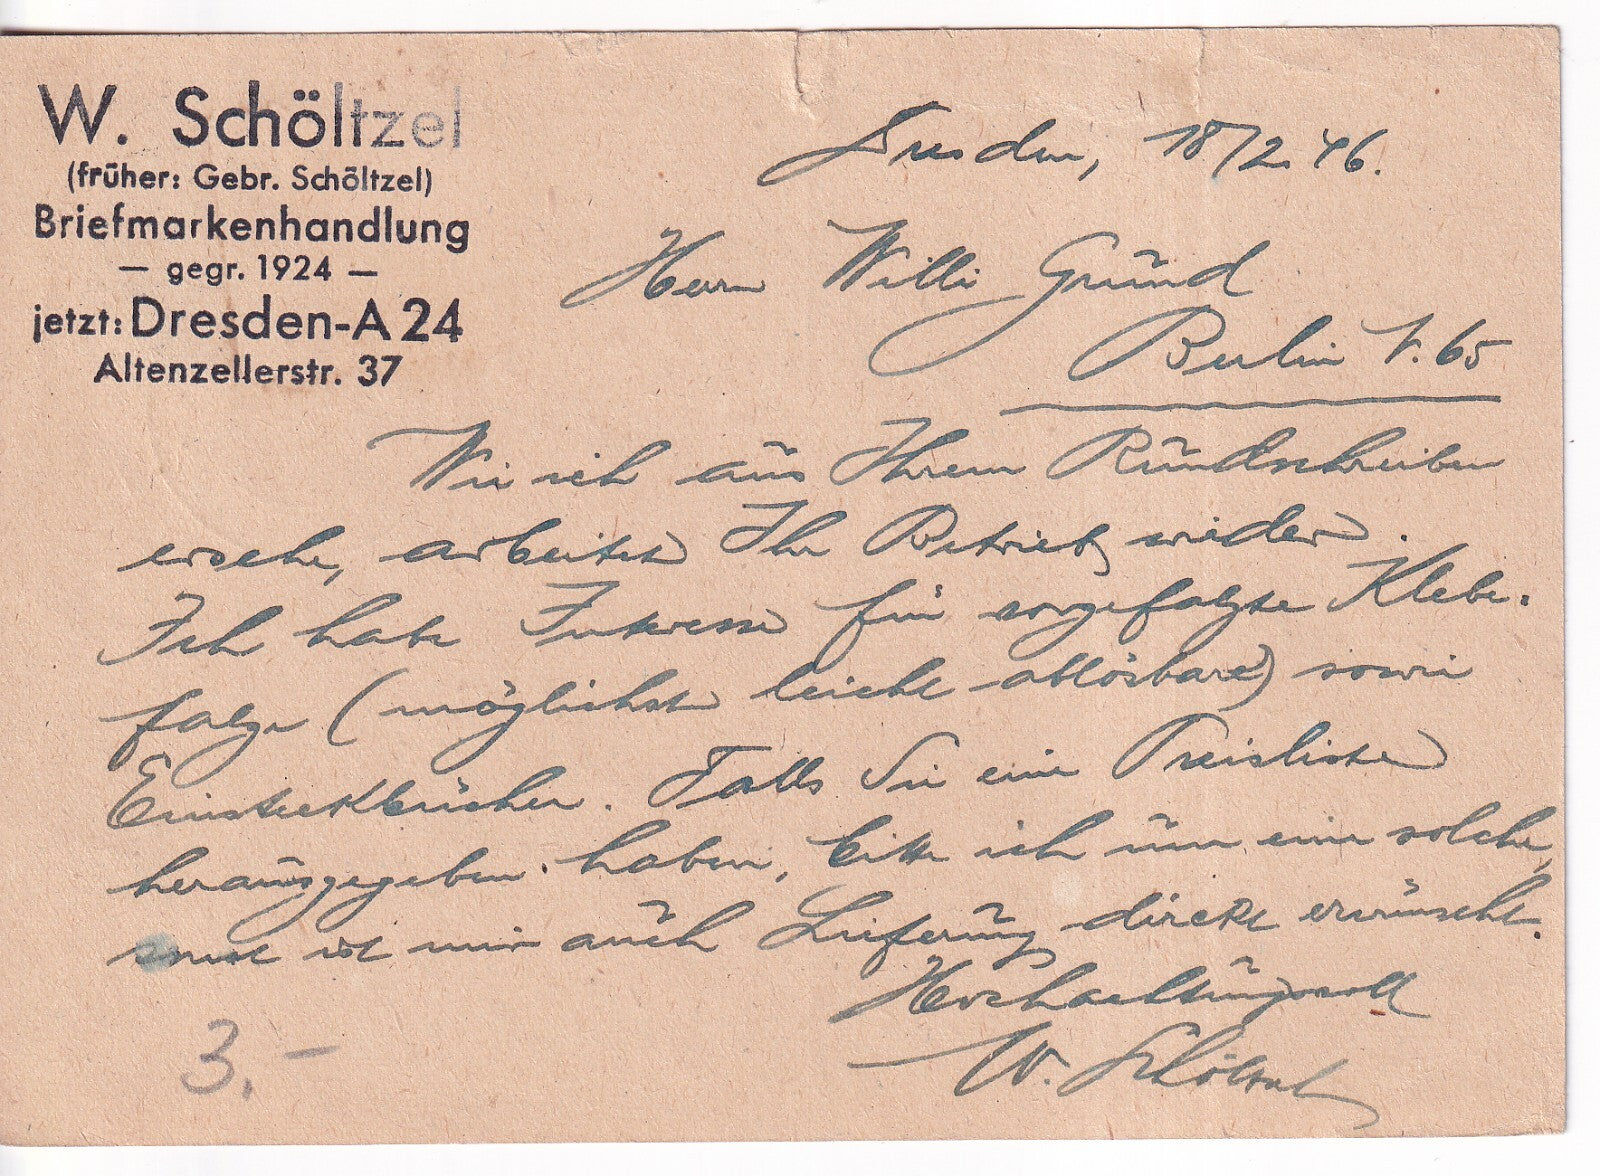 W. Schöltzel
(früher: Gebr. Schöltzel)
Briefmarkenhandlung
— gegr. 1924 —
jetzt: Dresden-A 24
Altenzellerstr. 37
Dresden, 18/2 46.
Herrn Willi Gründ
Berlin N. 65
Wie ich aus Ihrem Rundschreiben
ersehe, arbeitet Ihr Betrieb wieder.
Ich habe Interesse für vorgefalzte Klebe-
falze (möglichst leicht ablösbare) sowie
Einsteckbücher. Falls Sie eine Preisliste
herausgegeben haben, bitte ich um eine solche,
sonst ist mir auch Lieferung direkt erwünscht.
Hochachtungsvoll
W. Schöltzel
3.-